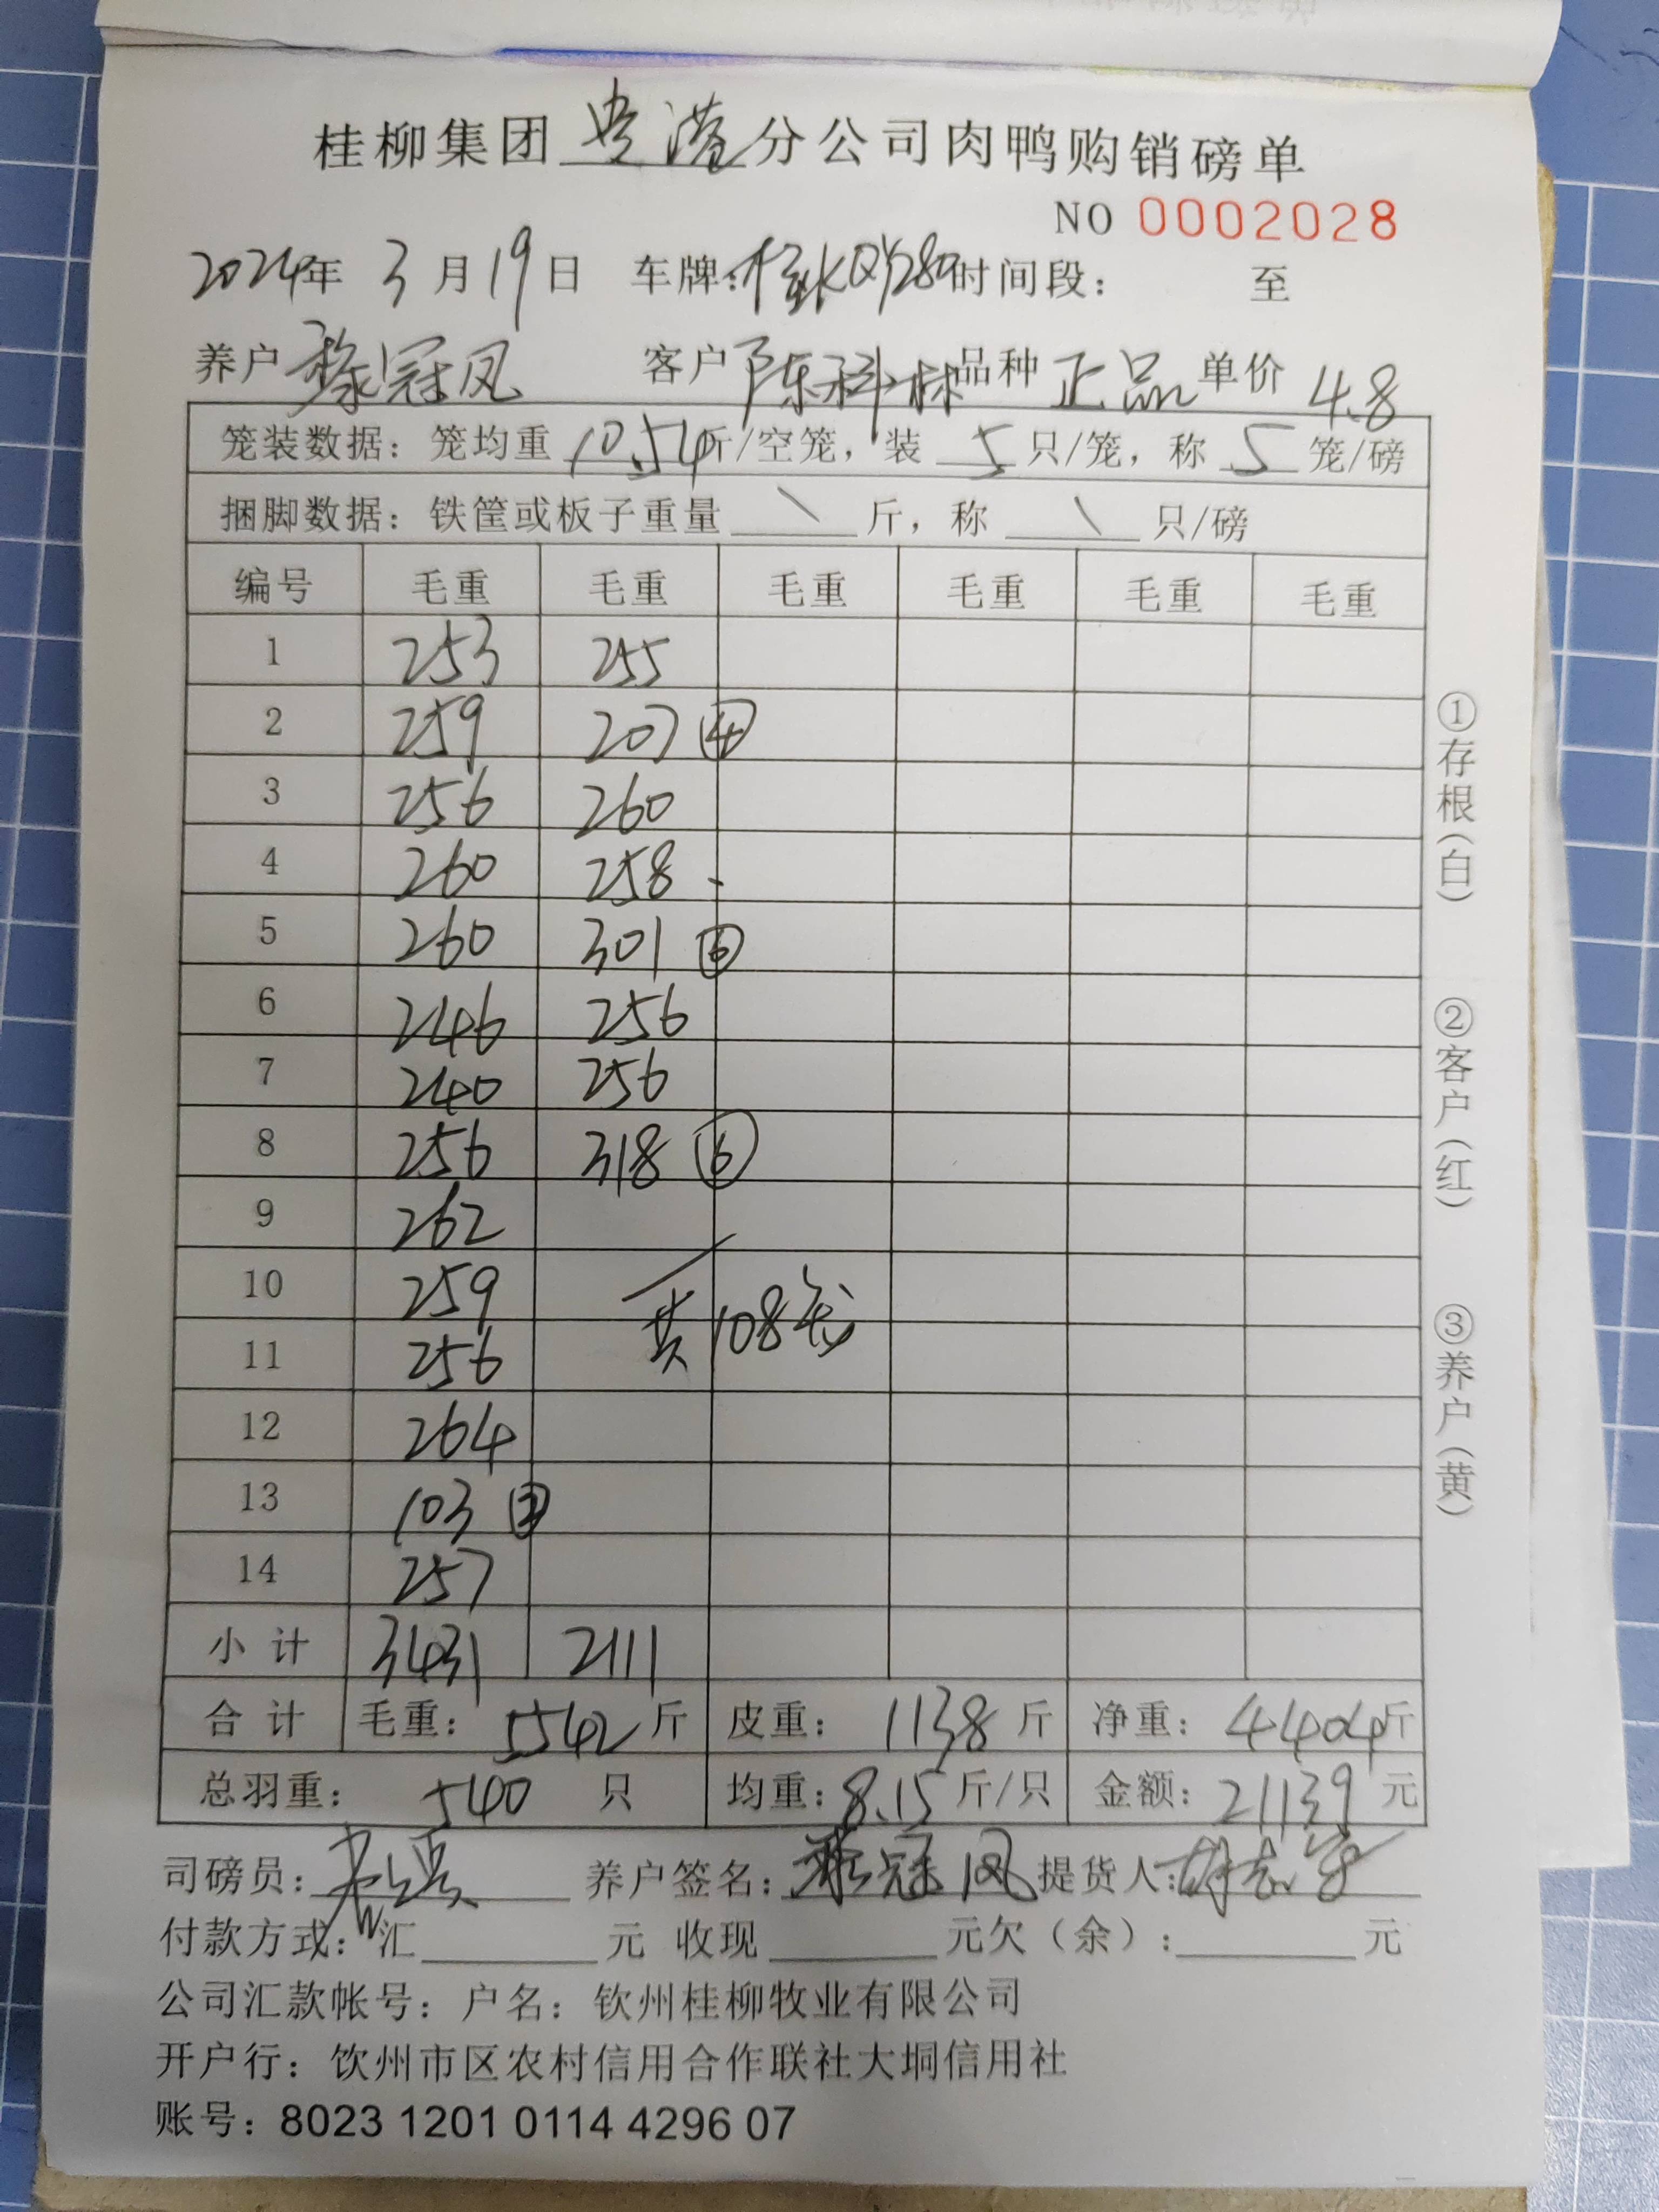 桂柳集团贵港分公司肉鸭购销磅单
NO 0002028
2024年 3月19日 车牌: 时间段: 至
养户 黎冠凤 客户 陈科林 品种 正品 单价 4.8
笼装数据: 笼均重 10.54 斤/空笼, 装 5 只/笼, 称 5 笼/磅
捆脚数据: 铁筐或板子重量 \ 斤, 称 \ 只/磅
编号 毛重 毛重 毛重 毛重 毛重 毛重
1 253 255
2 259 207 ④
3 256 260
4 260 258
5 260 301 ⑥
6 246 256
7 240 256
8 256 318 ⑥
9 262
10 259
11 256 共108笼
12 264
13 103 ②
14 257
小计 3431 2111
合计 毛重: 5542 斤 皮重: 1138 斤 净重: 4404 斤
总羽重: 540 只 均重: 8.15 斤/只 金额: 21139 元
司磅员: 养户签名: 黎冠凤 提货人:
付款方式: 汇 元 收现 元欠(余): 元
公司汇款帐号: 户名: 钦州桂柳牧业有限公司
开户行: 钦州市区农村信用合作联社大垌信用社
账号: 8023 1201 0114 4296 07
①存根(白)
②客户(红)
③养户(黄)